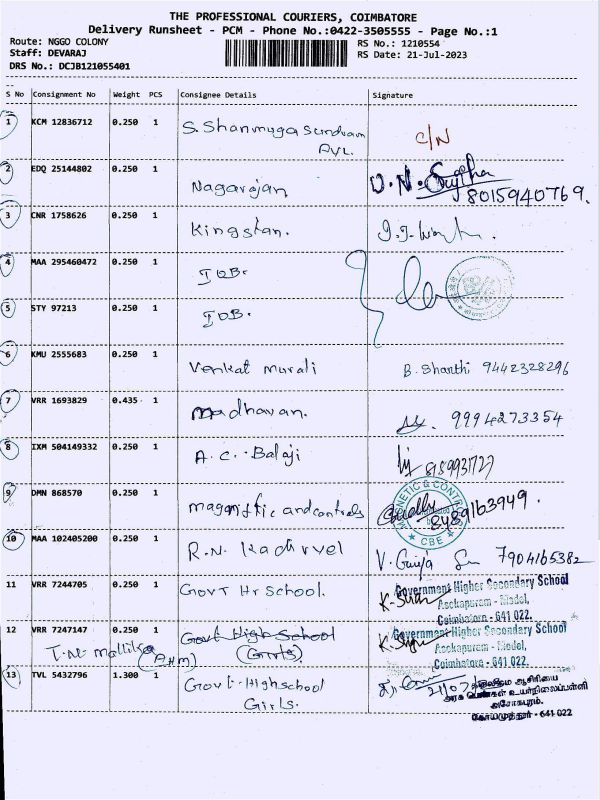 THE PROFESSIONAL COURIERS, COIMBATORE
Delivery Runsheet - PCM - Phone No.:0422-3505555 - Page No.:1
Route: NGGO COLONY RS No.: 1210554
Staff: DEVARAJ RS Date: 21-Jul-2023
DRS No.: DCJB121055401
S No Consignment No Weight PCS Consignee Details Signature
1 KCM 12836712 0.250 1 S. Shanmuga Sundram C/N
AVL.
2 EDQ 25144802 0.250 1 Nagarajan
8015940769.
3 CNR 1758626 0.250 1 Kingstan.
4 MAA 295460472 0.250 1 IOB.
5 STY 97213 0.250 1 IOB.
6 KMU 2555683 0.250 1 Venkat Murali B. Sharthi 9442328296
7 VRR 1693829 0.435 1 Madhavan. 9994273354
8 IXM 504149332 0.250 1 A.C. Balaji 8189931727
9 DMN 868570 0.250 1 magniftic and controls 8489163949.
MAGNETIC & CONTROL
CBE
10 MAA 102405200 0.250 1 R.N. Kadirvel V. Girija 7904165382
11 VRR 7244705 0.250 1 Govt Hr School. Government Higher Secondary School
Asokapuram - Model,
Coimbatore - 641 022.
12 VRR 7247147 0.250 1 Govt High School Government Higher Secondary School
T.N. mallika (AHM) (Girls). Asokapuram - Model,
Coimbatore - 641 022.
13 TVL 5432796 1.300 1 Govt. Highschool தலைமை ஆசிரியை
Girls. அரசு பெண்கள் உயர்நிலைப்பள்ளி
அசோகபுரம்.
கோயமுத்தூர் - 641 022